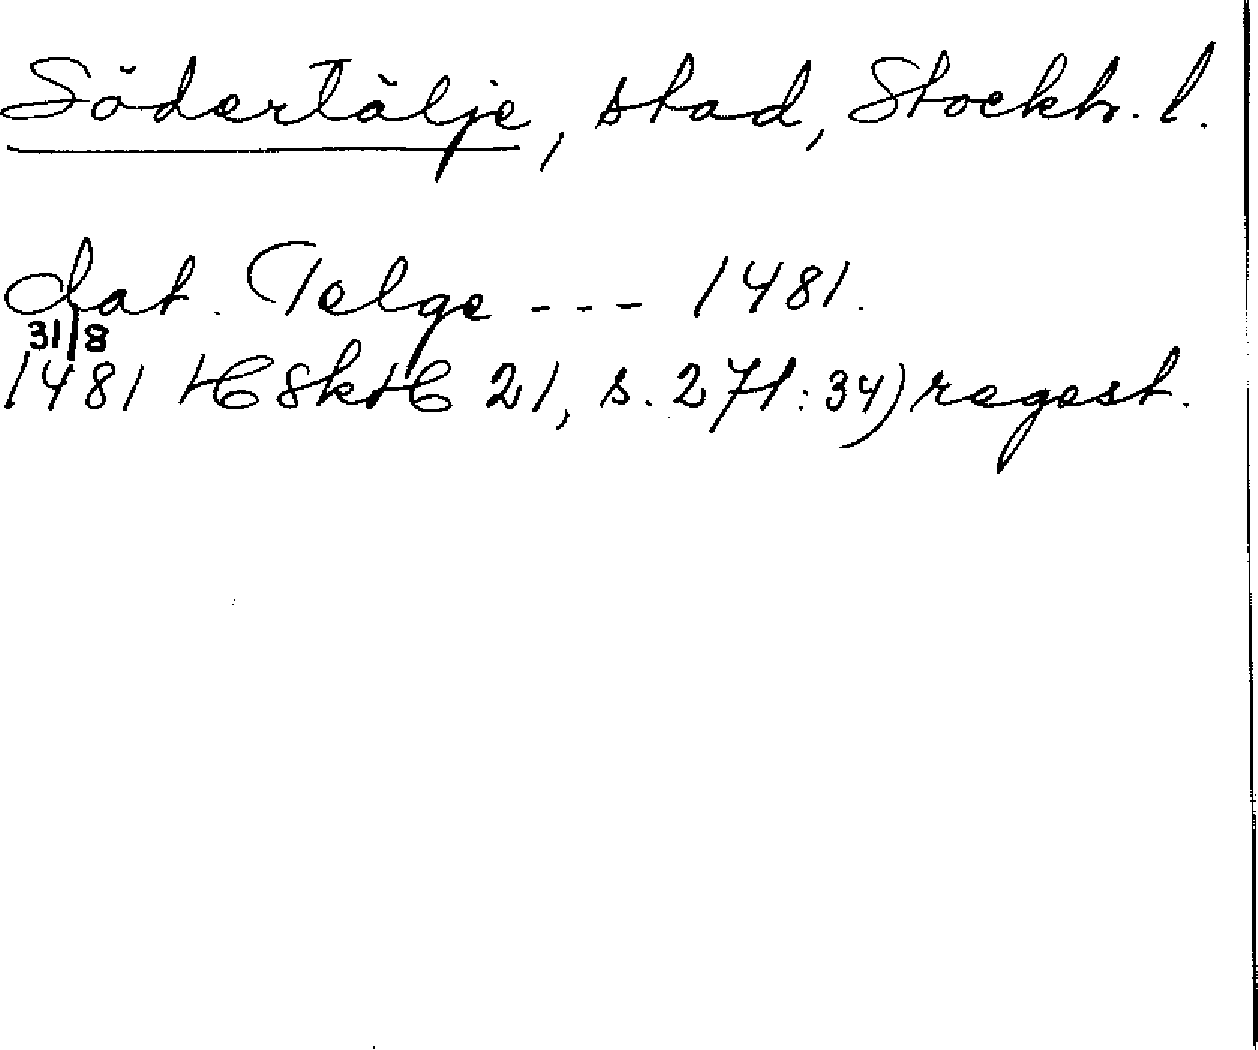 Södertälje, stad, Stockh. l.
dat. Telge --- 1481.
31/8
1481 HSkH 21, s. 271:34) regest.